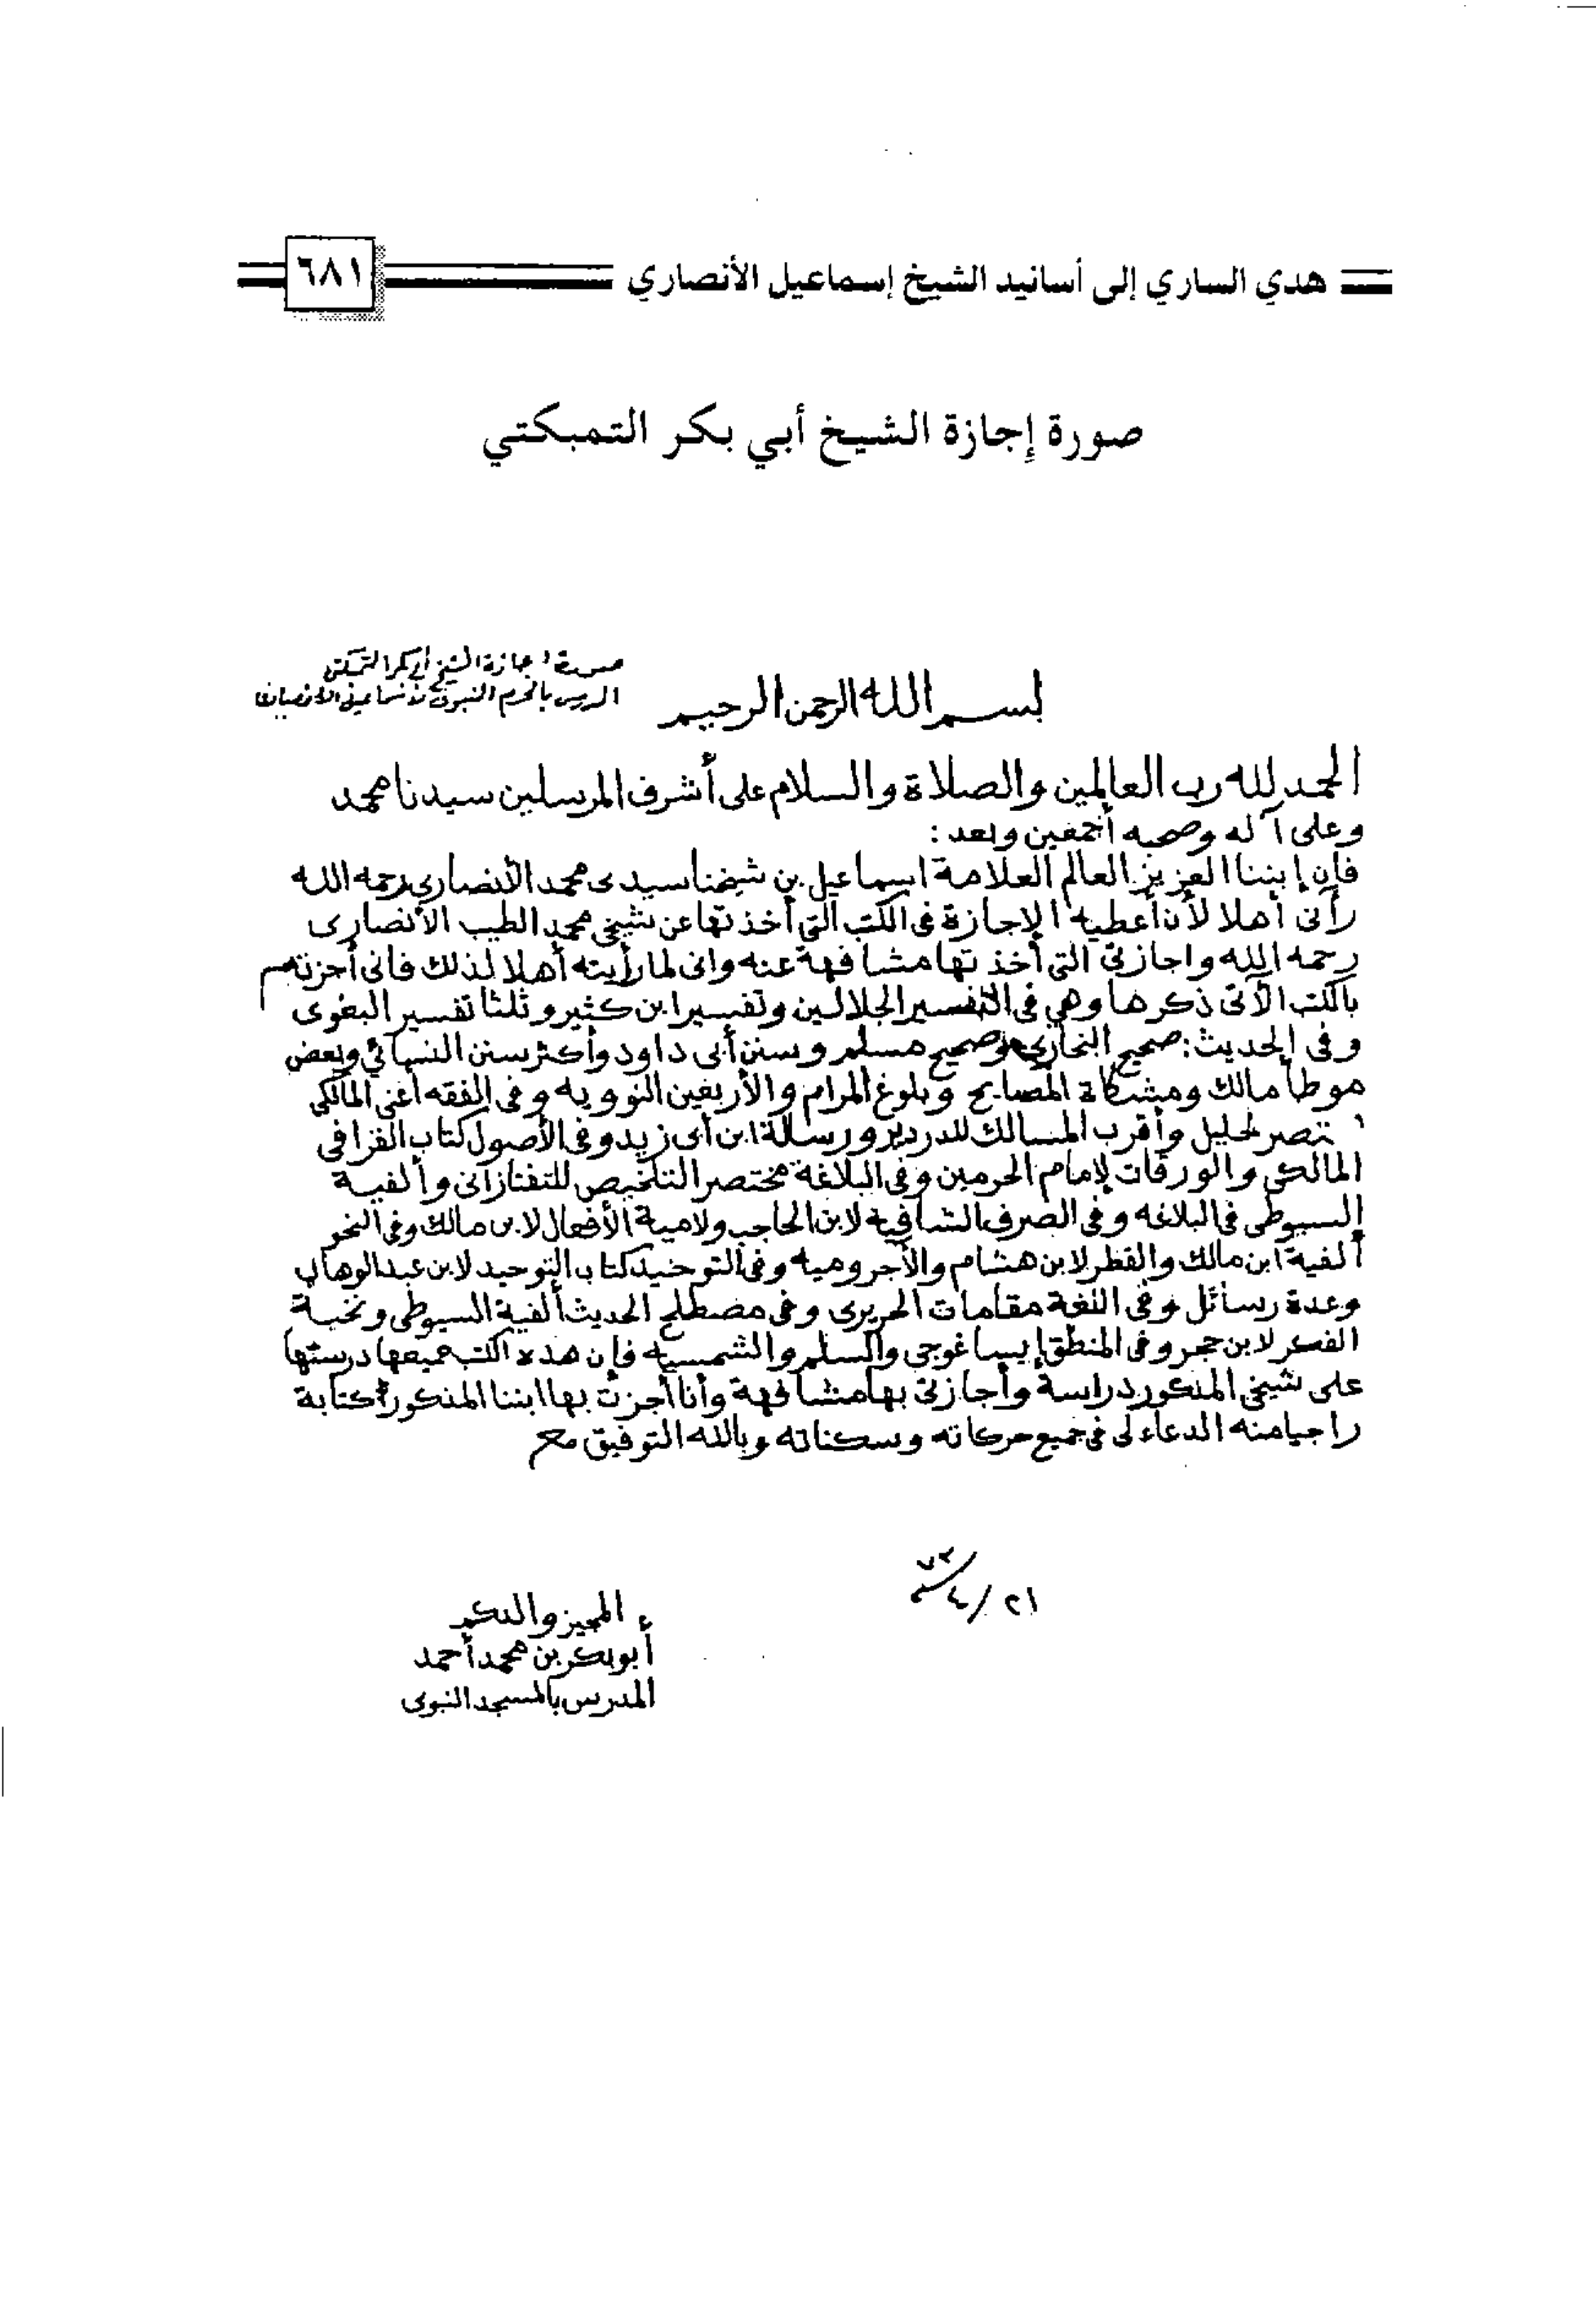 هدي الساري إلى أسانيد الشيخ إسماعيل الأنصاري ٦٨١
صورة إجازة الشيخ أبي بكر التمبكتي
صورة اجازة الشيخ أبي بكر التمبكتي
المدرس بالحرم النبوي
بسم الله الرحمن الرحيم
الحمد لله رب العالمين والصلاة والسلام على أشرف المرسلين سيدنا محمد
وعلى آله وصحبه أجمعين وبعد:
فإن إبننا العزيز العالم العلامة اسماعيل بن شيخنا سيدى محمد الأنصارى رحمه الله
رآنى أهلا لأن أعطيه الإجازة فى الكتب التى أخذتها عن شيخى محمد الطيب الأنصارى
رحمه الله واجازتى التى أخذتها مشافهة عنه وانى لما رأيته أهلا لذلك فانى أجزته
بالكتب الآتى ذكرها وهى فى التفسير الجلالين وتفسير ابن كثير وثلثا تفسير البغوى
وفى الحديث: صحيح البخارى وصحيح مسلم وسنن أبى داود وأكثر سنن النسائى وبعض
موطأ مالك ومشكاة المصابيح وبلوغ المرام والأربعين النوويه وفى الفقه أعنى المالكى
تصر لخليل وأقرب المسالك للدردير ورسالة ابن أبى زيد وفى الأصول كتاب القرافى
المالكى والورقات لإمام الحرمين وفى البلاغة مختصر التلخيص للتفتازانى وألفية
السيوطى فى البلاغه وفى الصرف الشافية لابن الحاجب ولامية الأفعال لابن مالك وفى النحو
ألفية ابن مالك والقطر لابن هشام والآجروميه وفى التوحيد كتاب التوحيد لابن عبد الوهاب
وعدة رسائل وفى اللغة مقامات الحريرى وفى مصطلح الحديث ألفية السيوطى ونخبة
الفكر لابن حجر وفى المنطق إيساغوجى والسلم والشمسيه فإن هذه الكتب جميعها درستها
على شيخى المذكور دراسة وأجازنى بها مشافهة وأنا أجزت بها ابننا المذكور كتابة
راجيا منه الدعاء لى فى جميع حركاته وسكناته وبالله التوفيق
المجيز
أبو بكر بن محمد أحمد
المدرس بالمسجد النبوى